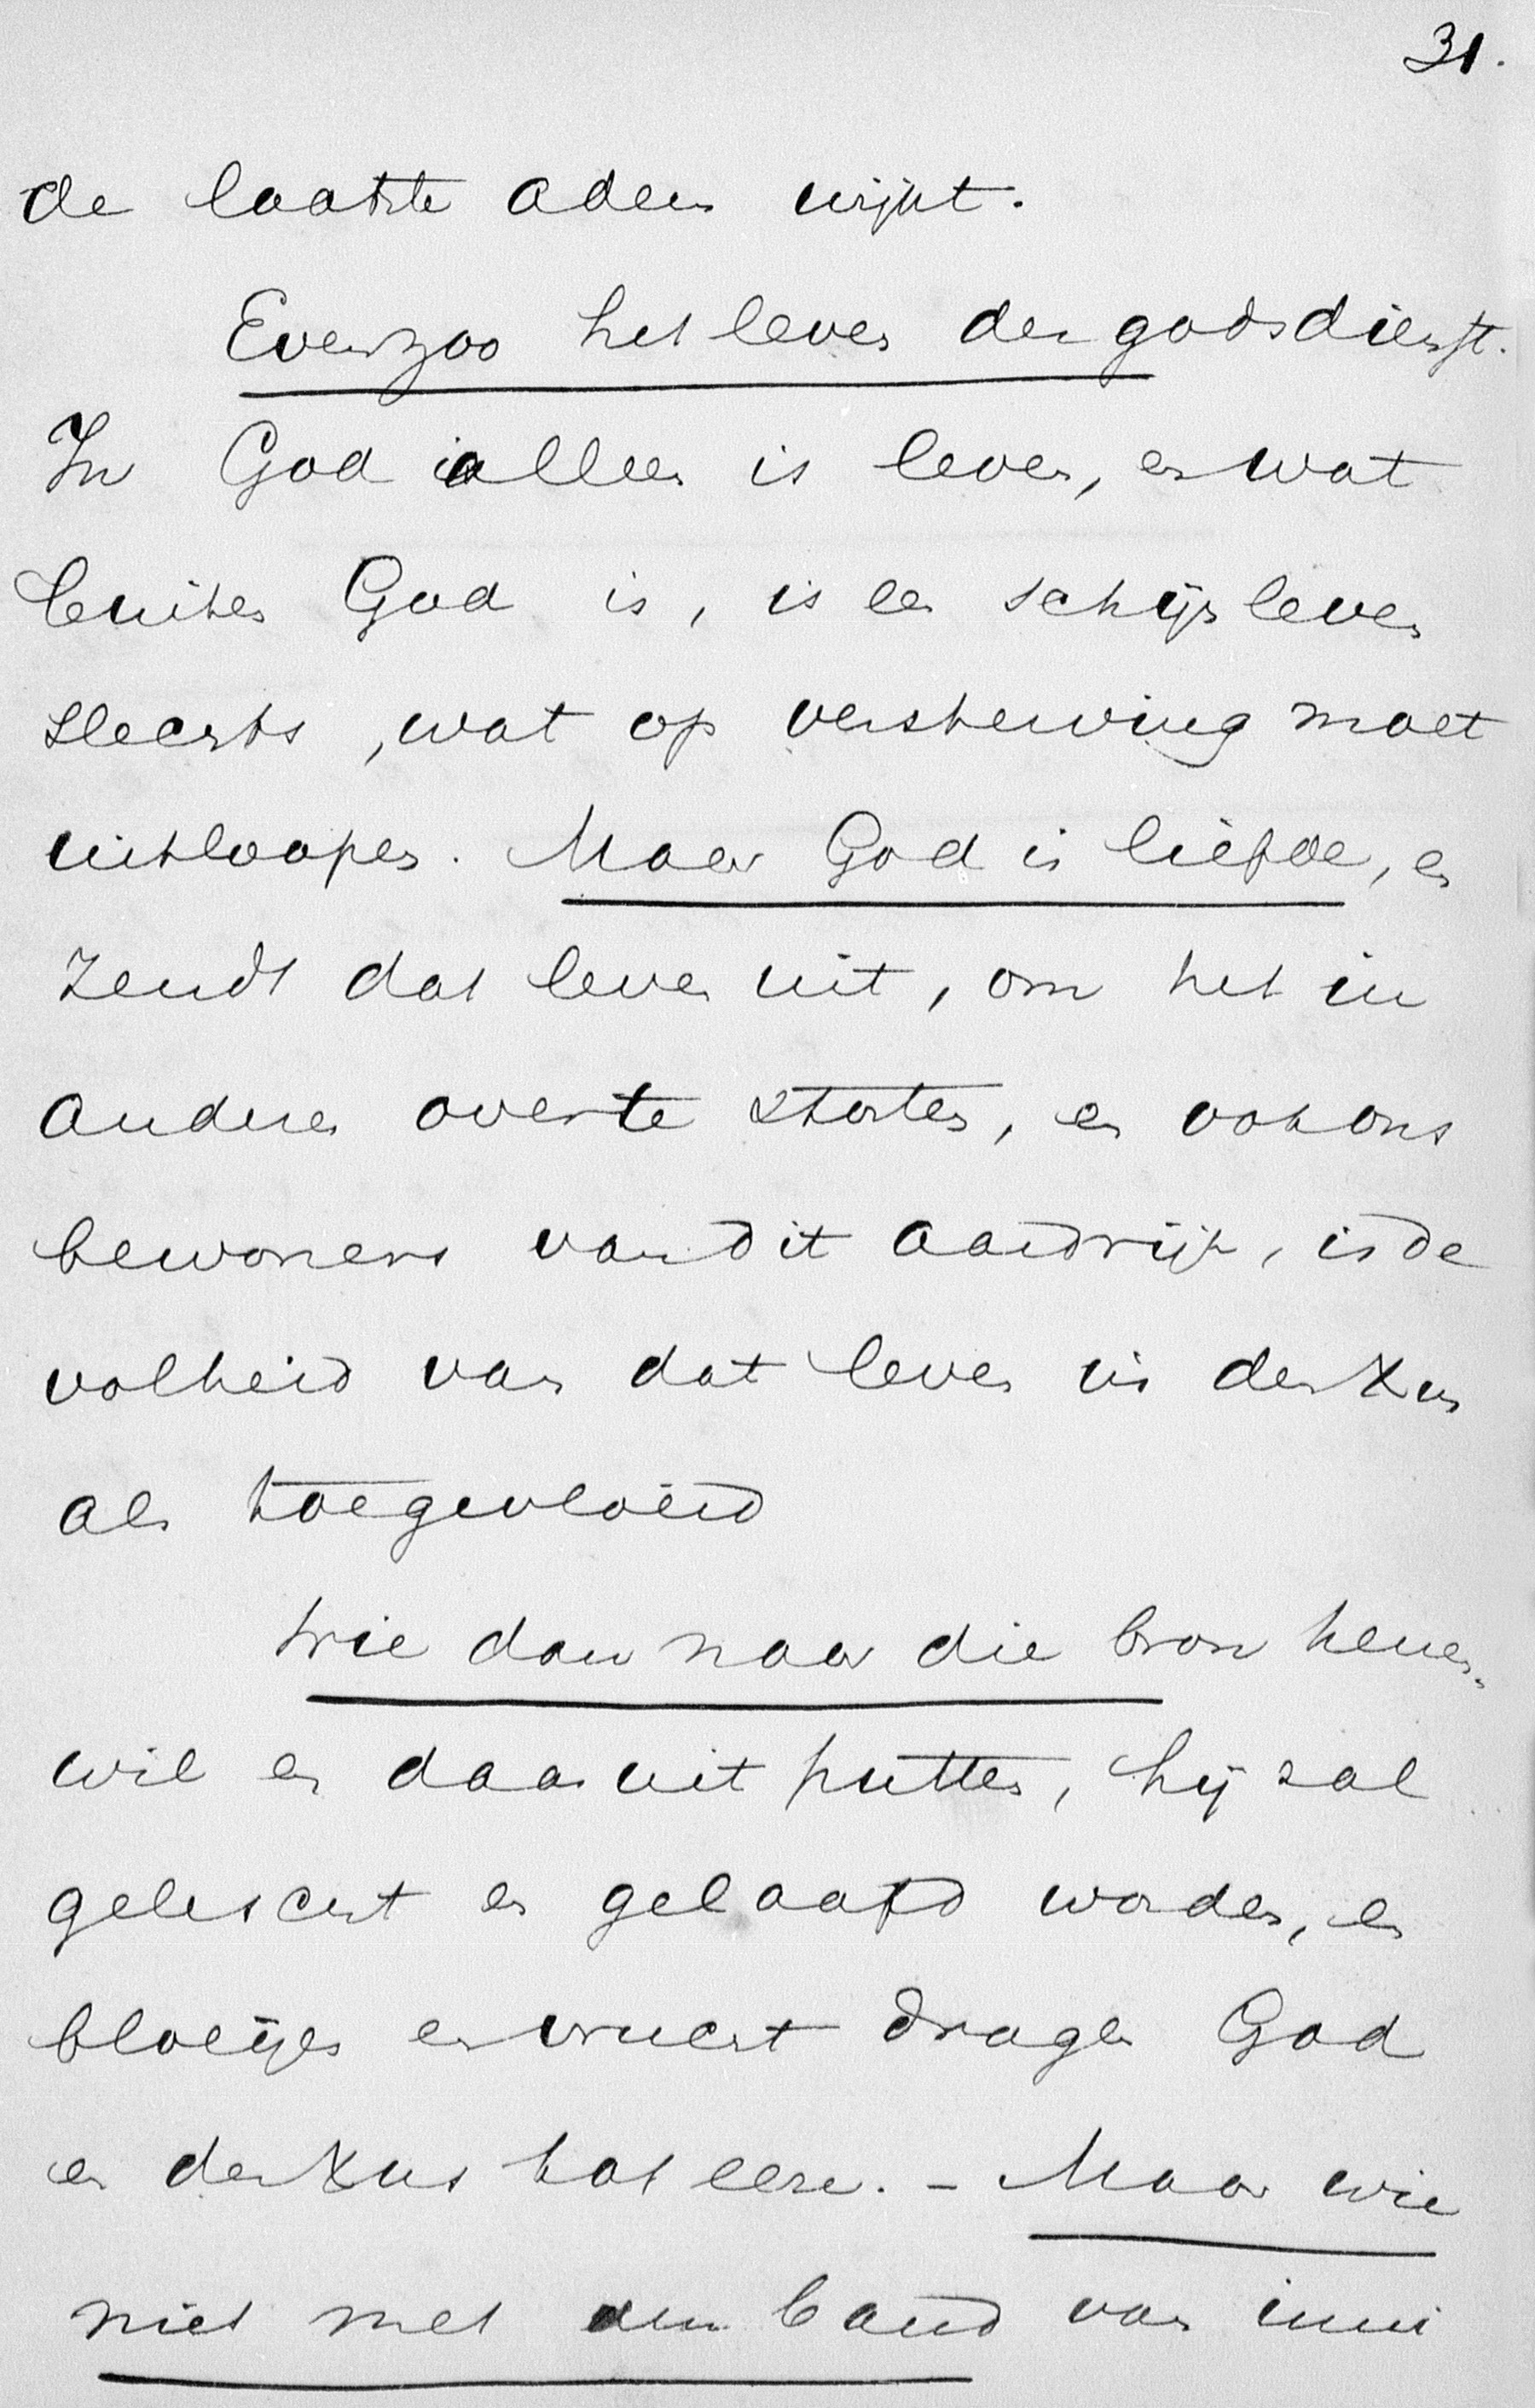 31.
de laatste adem wijkt.
Evenzoo het leven der godsdienst.
In God alleen is leven, en wat
buiten God is, is een schijnleven
slechts, wat op versterving moet
uitloopen. Maar God is liefde, en
zendt dat leven uit, om het in
anderen over te storten, en ook ons
bewoners van dit aardrijk, is de
volheid van dat leven in den Xus
als toegevloeid
Wie dan naar die bron henen
wil en daar uit putten, hij zal
gelescht en gelaafd worden, en
bloeijen en vrucht dragen God
en den Xus tot eere. - Maar wie
niet met den band van inni